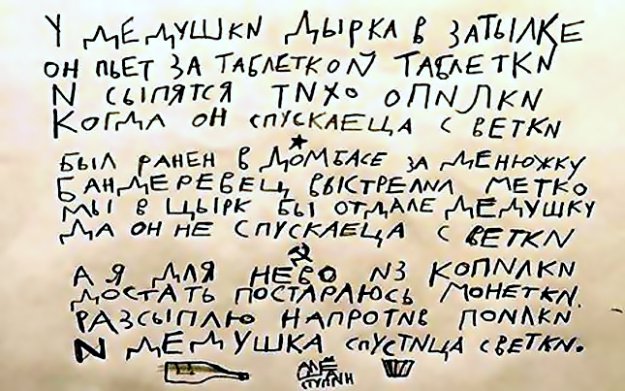 У ДЕДУШКИ ДЫРКА В ЗАТЫЛКЕ
ОН ПЬЕТ ЗА ТАБЛЕТКОЙ ТАБЛЕТКИ
И СЫПЯТСЯ ТИХО ОПИЛКИ
КОГДА ОН СПУСКАЕЦА С ВЕТКИ
БЫЛ РАНЕН В ДОМБАСЕ ЗА ДЕНЮЖКУ
БАНДЕРЕВЕЦ ВЫСТРЕЛИЛ МЕТКО
МЫ В ЦЫРК БЫ ОТДАЛЕ ДЕДУШКУ
ДА ОН НЕ СПУСКАЕЦА С ВЕТКИ
А Я ДЛЯ НЕВО ИЗ КОПИЛКИ
ДОСТАТЬ ПОСТАРАЮСЬ МОНЕТКИ.
РАЗСЫПЛЮ НАПРОТИВ ПОИЛКИ
И ДЕДУШКА СПУСТИЦА СВЕТКИ.